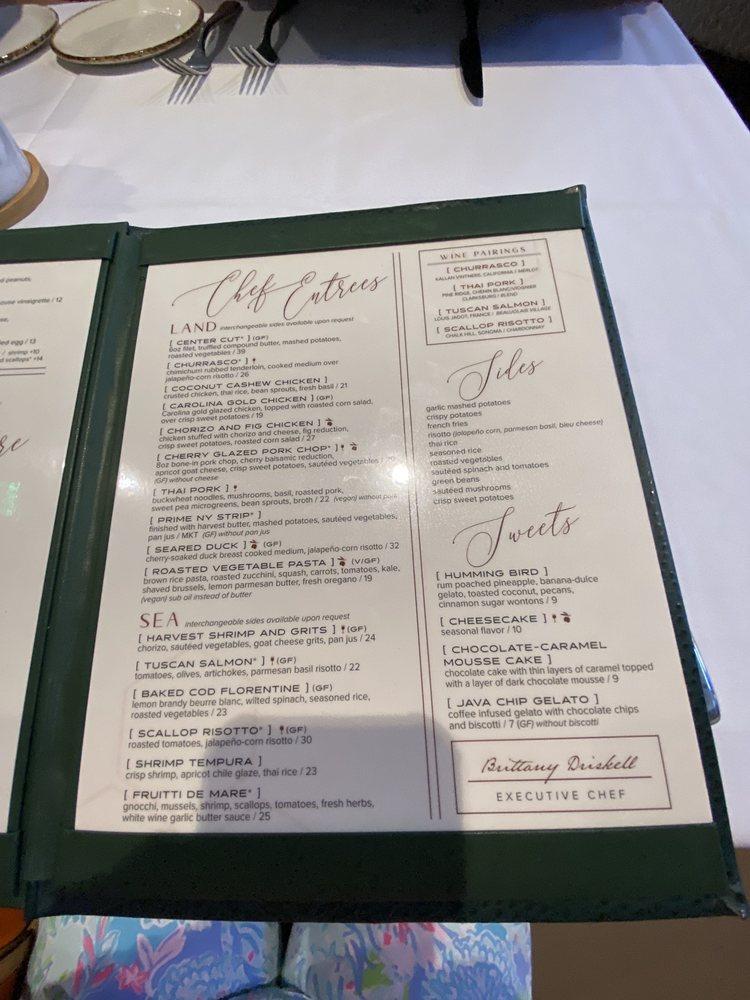 d peanuts,
ouse vinaigrette / 12
ed egg / 13
/ shrimp +10
d scallops* +14
re
Chef Entrees
LAND interchangeable sides available upon request
[ CENTER CUT* ] (GF)
8oz filet, truffled compound butter, mashed potatoes,
roasted vegetables / 39
[ CHURRASCO* ]
chimichurri rubbed tenderloin, cooked medium over
jalapeño-corn risotto / 26
[ COCONUT CASHEW CHICKEN ]
crusted chicken, thai rice, bean sprouts, fresh basil / 21
[ CAROLINA GOLD CHICKEN ] (GF)
Carolina gold glazed chicken, topped with roasted corn salad,
over crisp sweet potatoes / 19
[ CHORIZO AND FIG CHICKEN ]
chicken stuffed with chorizo and cheese, fig reduction,
crisp sweet potatoes, roasted corn salad / 27
[ CHERRY GLAZED PORK CHOP* ]
8oz bone-in pork chop, cherry balsamic reduction,
apricot goat cheese, crisp sweet potatoes, sautéed vegetables /
(GF) without cheese
[ THAI PORK ]
buckwheat noodles, mushrooms, basil, roasted pork,
sweet pea microgreens, bean sprouts, broth / 22 (vegan) without pork
[ PRIME NY STRIP* ]
finished with harvest butter, mashed potatoes, sautéed vegetables,
pan jus / MKT (GF) without pan jus
[ SEARED DUCK ] (GF)
cherry-soaked duck breast cooked medium, jalapeño-corn risotto / 32
[ ROASTED VEGETABLE PASTA ] (V/GF)
brown rice pasta, roasted zucchini, squash, carrots, tomatoes, kale,
shaved brussels, lemon parmesan butter, fresh oregano / 19
(vegan) sub oil instead of butter
SEA interchangeable sides available upon request
[ HARVEST SHRIMP AND GRITS ] (GF)
chorizo, sautéed vegetables, goat cheese grits, pan jus / 24
[ TUSCAN SALMON* ] (GF)
tomatoes, olives, artichokes, parmesan basil risotto / 22
[ BAKED COD FLORENTINE ] (GF)
lemon brandy beurre blanc, wilted spinach, seasoned rice,
roasted vegetables / 23
[ SCALLOP RISOTTO* ] (GF)
roasted tomatoes, jalapeño-corn risotto / 30
[ SHRIMP TEMPURA ]
crisp shrimp, apricot chile glaze, thai rice / 23
[ FRUITTI DE MARE* ]
gnocchi, mussels, shrimp, scallops, tomatoes, fresh herbs,
white wine garlic butter sauce / 25
WINE PAIRINGS
[ CHURRASCO ]
KALLAN VINTNERS, CALIFORNIA / MERLOT
[ THAI PORK ]
PINE RIDGE, CHENIN BLANC/VIOGNIER
CLARKSBURG / BLEND
[ TUSCAN SALMON ]
LOUIS JADOT, FRANCE / BEAUJOLAIS VILLAGE
[ SCALLOP RISOTTO ]
CHALK HILL, SONOMA / CHARDONNAY
Sides
garlic mashed potatoes
crispy potatoes
french fries
risotto (jalapeño corn, parmesan basil, bleu cheese)
thai rice
seasoned rice
roasted vegetables
sautéed spinach and tomatoes
green beans
sautéed mushrooms
crisp sweet potatoes
Sweets
[ HUMMING BIRD ]
rum poached pineapple, banana-dulce
gelato, toasted coconut, pecans,
cinnamon sugar wontons / 9
[ CHEESECAKE ]
seasonal flavor / 10
[ CHOCOLATE-CARAMEL
MOUSSE CAKE ]
chocolate cake with thin layers of caramel topped
with a layer of dark chocolate mousse / 9
[ JAVA CHIP GELATO ]
coffee infused gelato with chocolate chips
and biscotti / 7 (GF) without biscotti
Brittany Driskell
EXECUTIVE CHEF